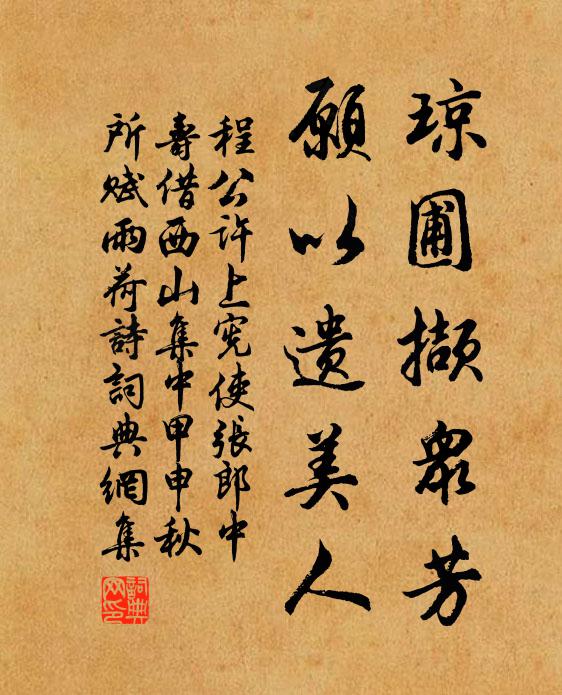 琼圃擷眾芳
願以遺美人
程公許上宪使張郎中
壽借西山集中甲申秋
所賦雨荷詩詞典網集
詞典網印